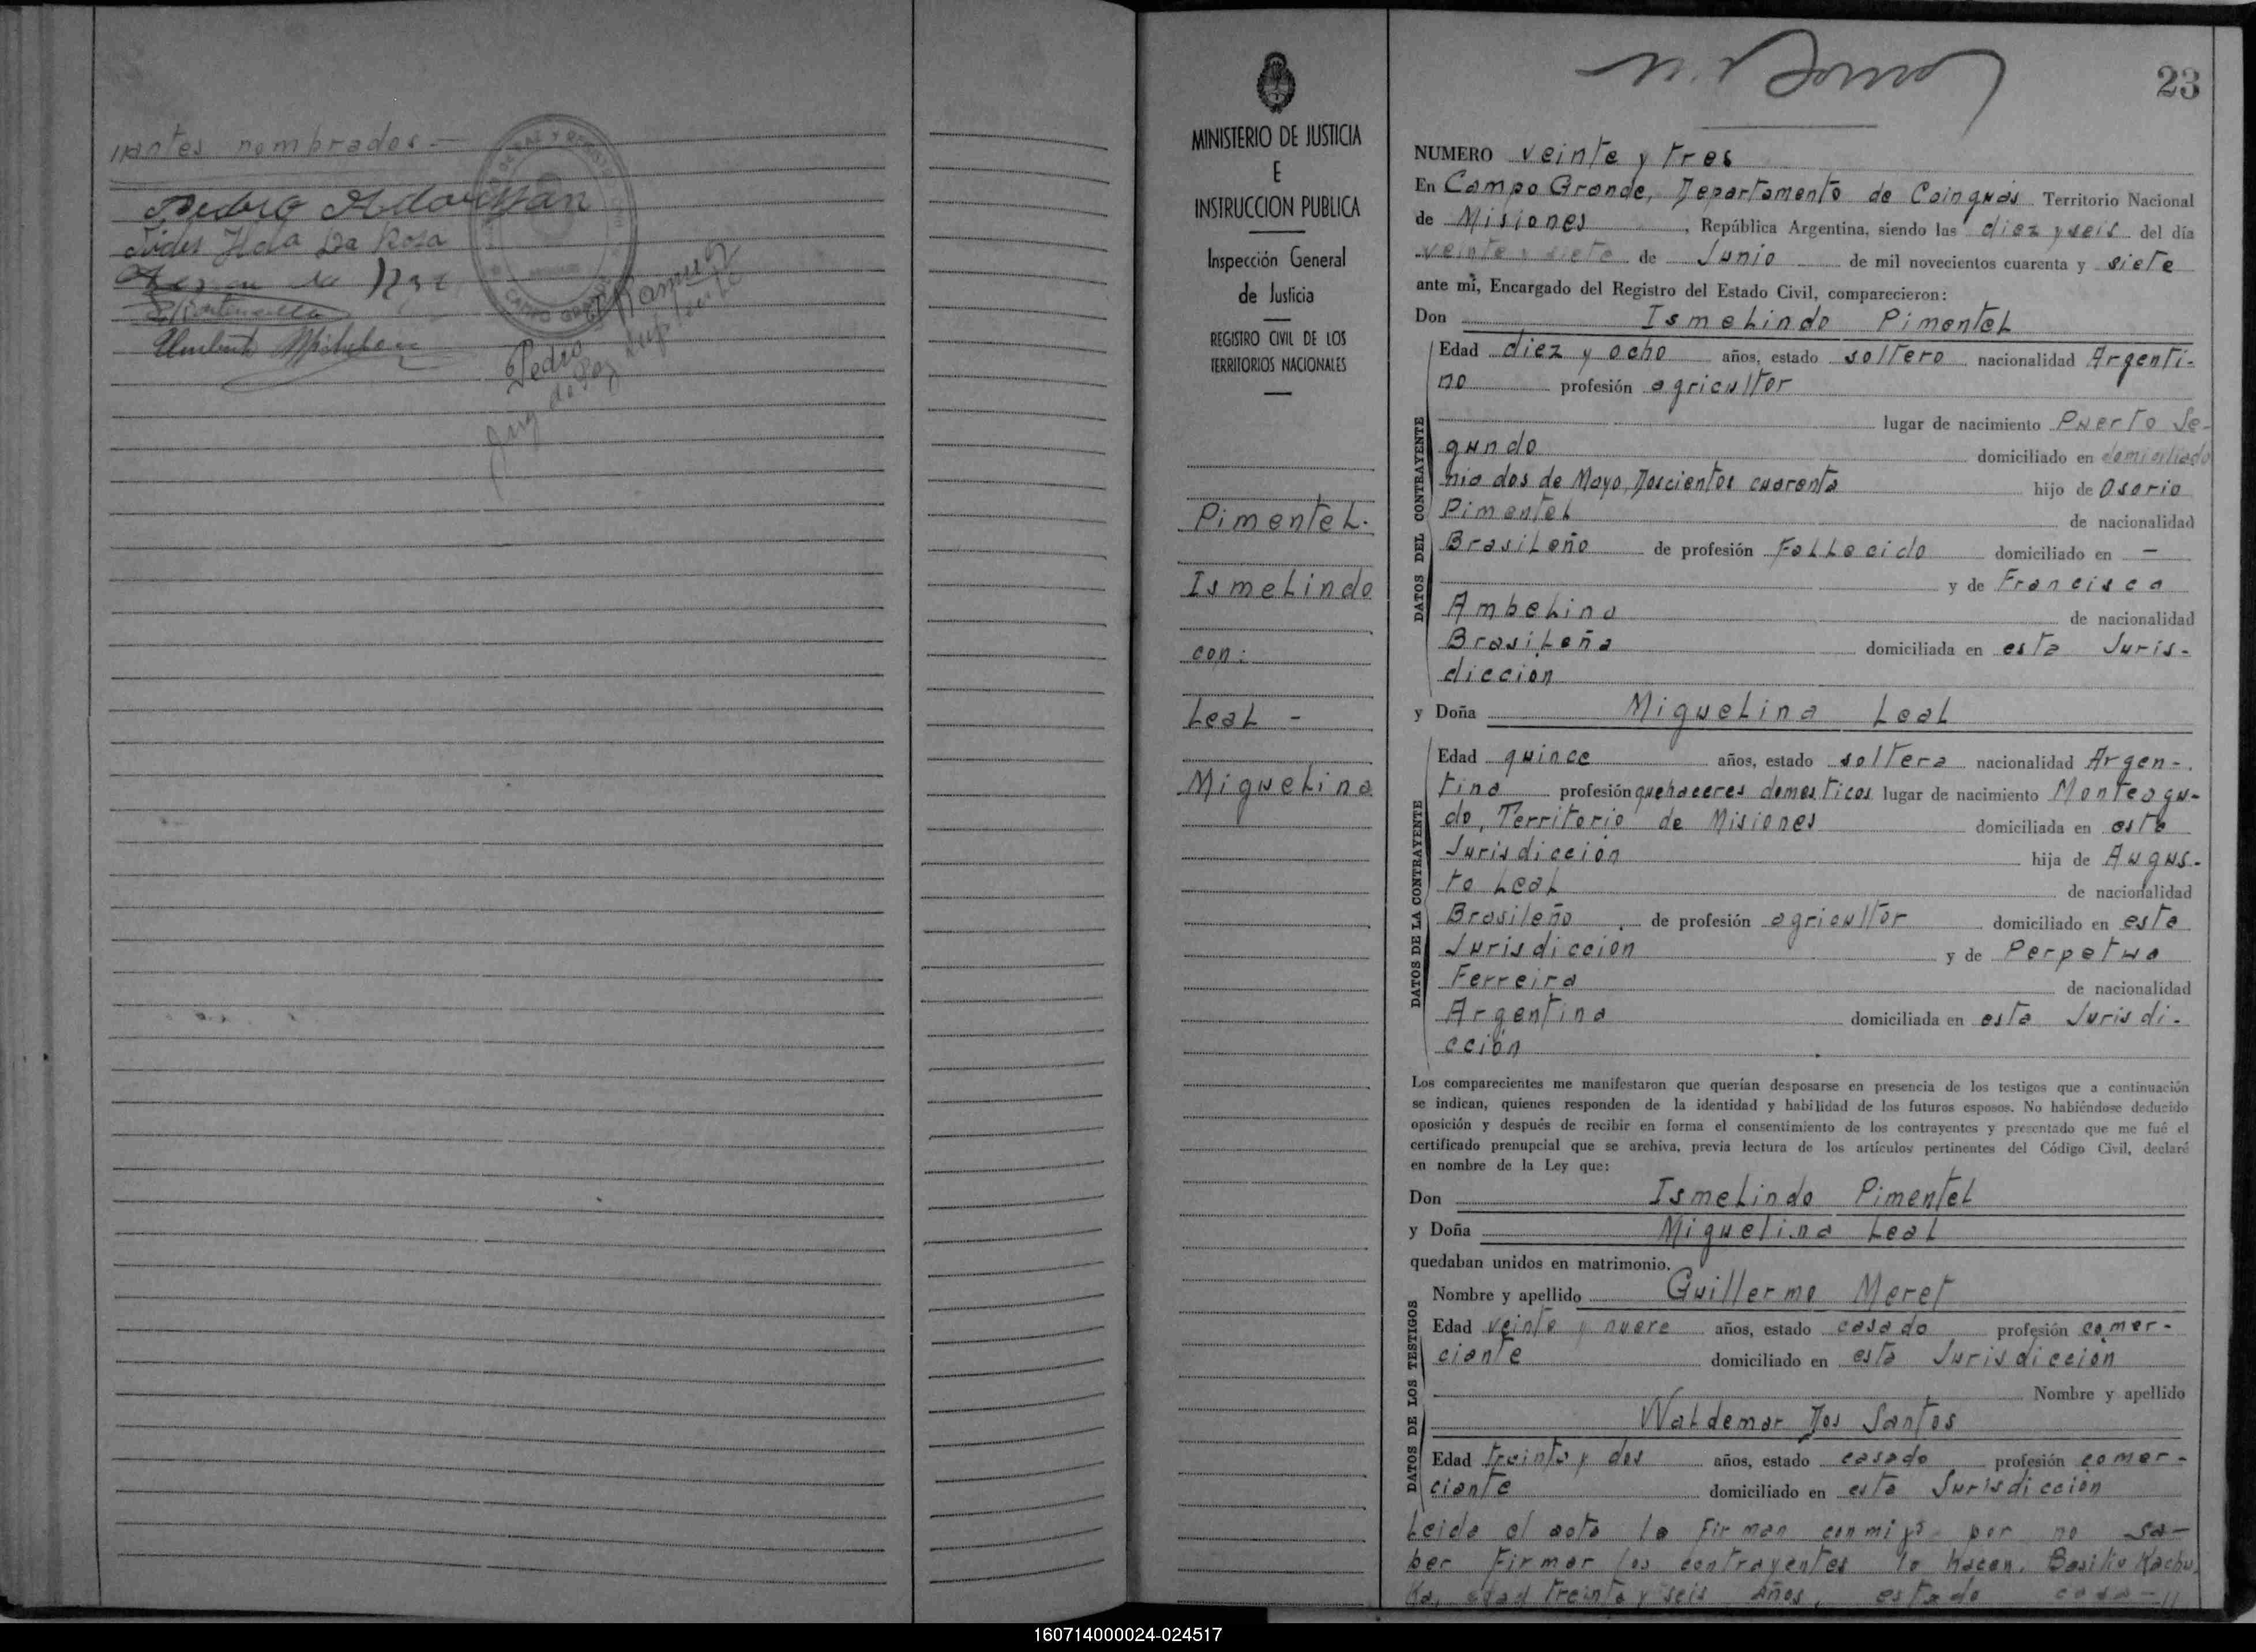 nantes nombrados.—
Pedro
Hda Da Rosa
Pedro Ramirez
Juez de Paz Suplente
MINISTERIO DE JUSTICIA
E
INSTRUCCION PUBLICA
Inspección General
de Justicia
REGISTRO CIVIL DE LOS
TERRITORIOS NACIONALES
Pimentel.
Ismelindo
con:
Leal -
Miguelina
23
NUMERO veinte y tres
En Campo Grande, Departamento de Cainguás Territorio Nacional
de Misiones, República Argentina, siendo las diez y seis del día
veinte y siete de Junio de mil novecientos cuarenta y siete
ante mí, Encargado del Registro del Estado Civil, comparecieron:
Don Ismelindo Pimentel
DATOS DEL CONTRAYENTE
Edad diez y ocho años, estado soltero nacionalidad Argenti-
no profesión agricultor
lugar de nacimiento Puerto Se-
gundo domiciliado en
nia dos de Mayo, Doscientos cuarenta hijo de Osorio
Pimentel de nacionalidad
Brasileño de profesión Fallecido domiciliado en —
y de Francisca
Ambelina de nacionalidad
Brasileña domiciliada en esta Juris-
dicción
y Doña Miguelina Leal
DATOS DE LA CONTRAYENTE
Edad quince años, estado soltera nacionalidad Argen-
tina profesión quehaceres domesticos lugar de nacimiento Monteagu-
do, Territorio de Misiones domiciliada en esta
Jurisdicción hija de Augus-
to Leal de nacionalidad
Brasileño de profesión agricultor domiciliado en esta
Jurisdicción y de Perpetua
Ferreira de nacionalidad
Argentina domiciliada en esta Jurisdi-
cción
Los comparecientes me manifestaron que querían desposarse en presencia de los testigos que a continuación
se indican, quienes responden de la identidad y habilidad de los futuros esposos. No habiéndose deducido
oposición y después de recibir en forma el consentimiento de los contrayentes y presentado que me fué el
certificado prenupcial que se archiva, previa lectura de los artículos pertinentes del Código Civil, declaré
en nombre de la Ley que:
Don Ismelindo Pimentel
y Doña Miguelina Leal
quedaban unidos en matrimonio.
DATOS DE LOS TESTIGOS
Nombre y apellido Guillermo Meret
Edad veinte y nueve años, estado casado profesión comer-
ciante domiciliado en esta Jurisdicción
Nombre y apellido
Waldemar Dos Santos
Edad treinta y dos años, estado casado profesión comer-
ciante domiciliado en esta Jurisdicción
Leida el acta la firman conmigo por no sa-
ber firmar los contrayentes lo hacen, Basilio Kachu
ka, edad treinta y seis años, estado casa-//
160714000024-024517